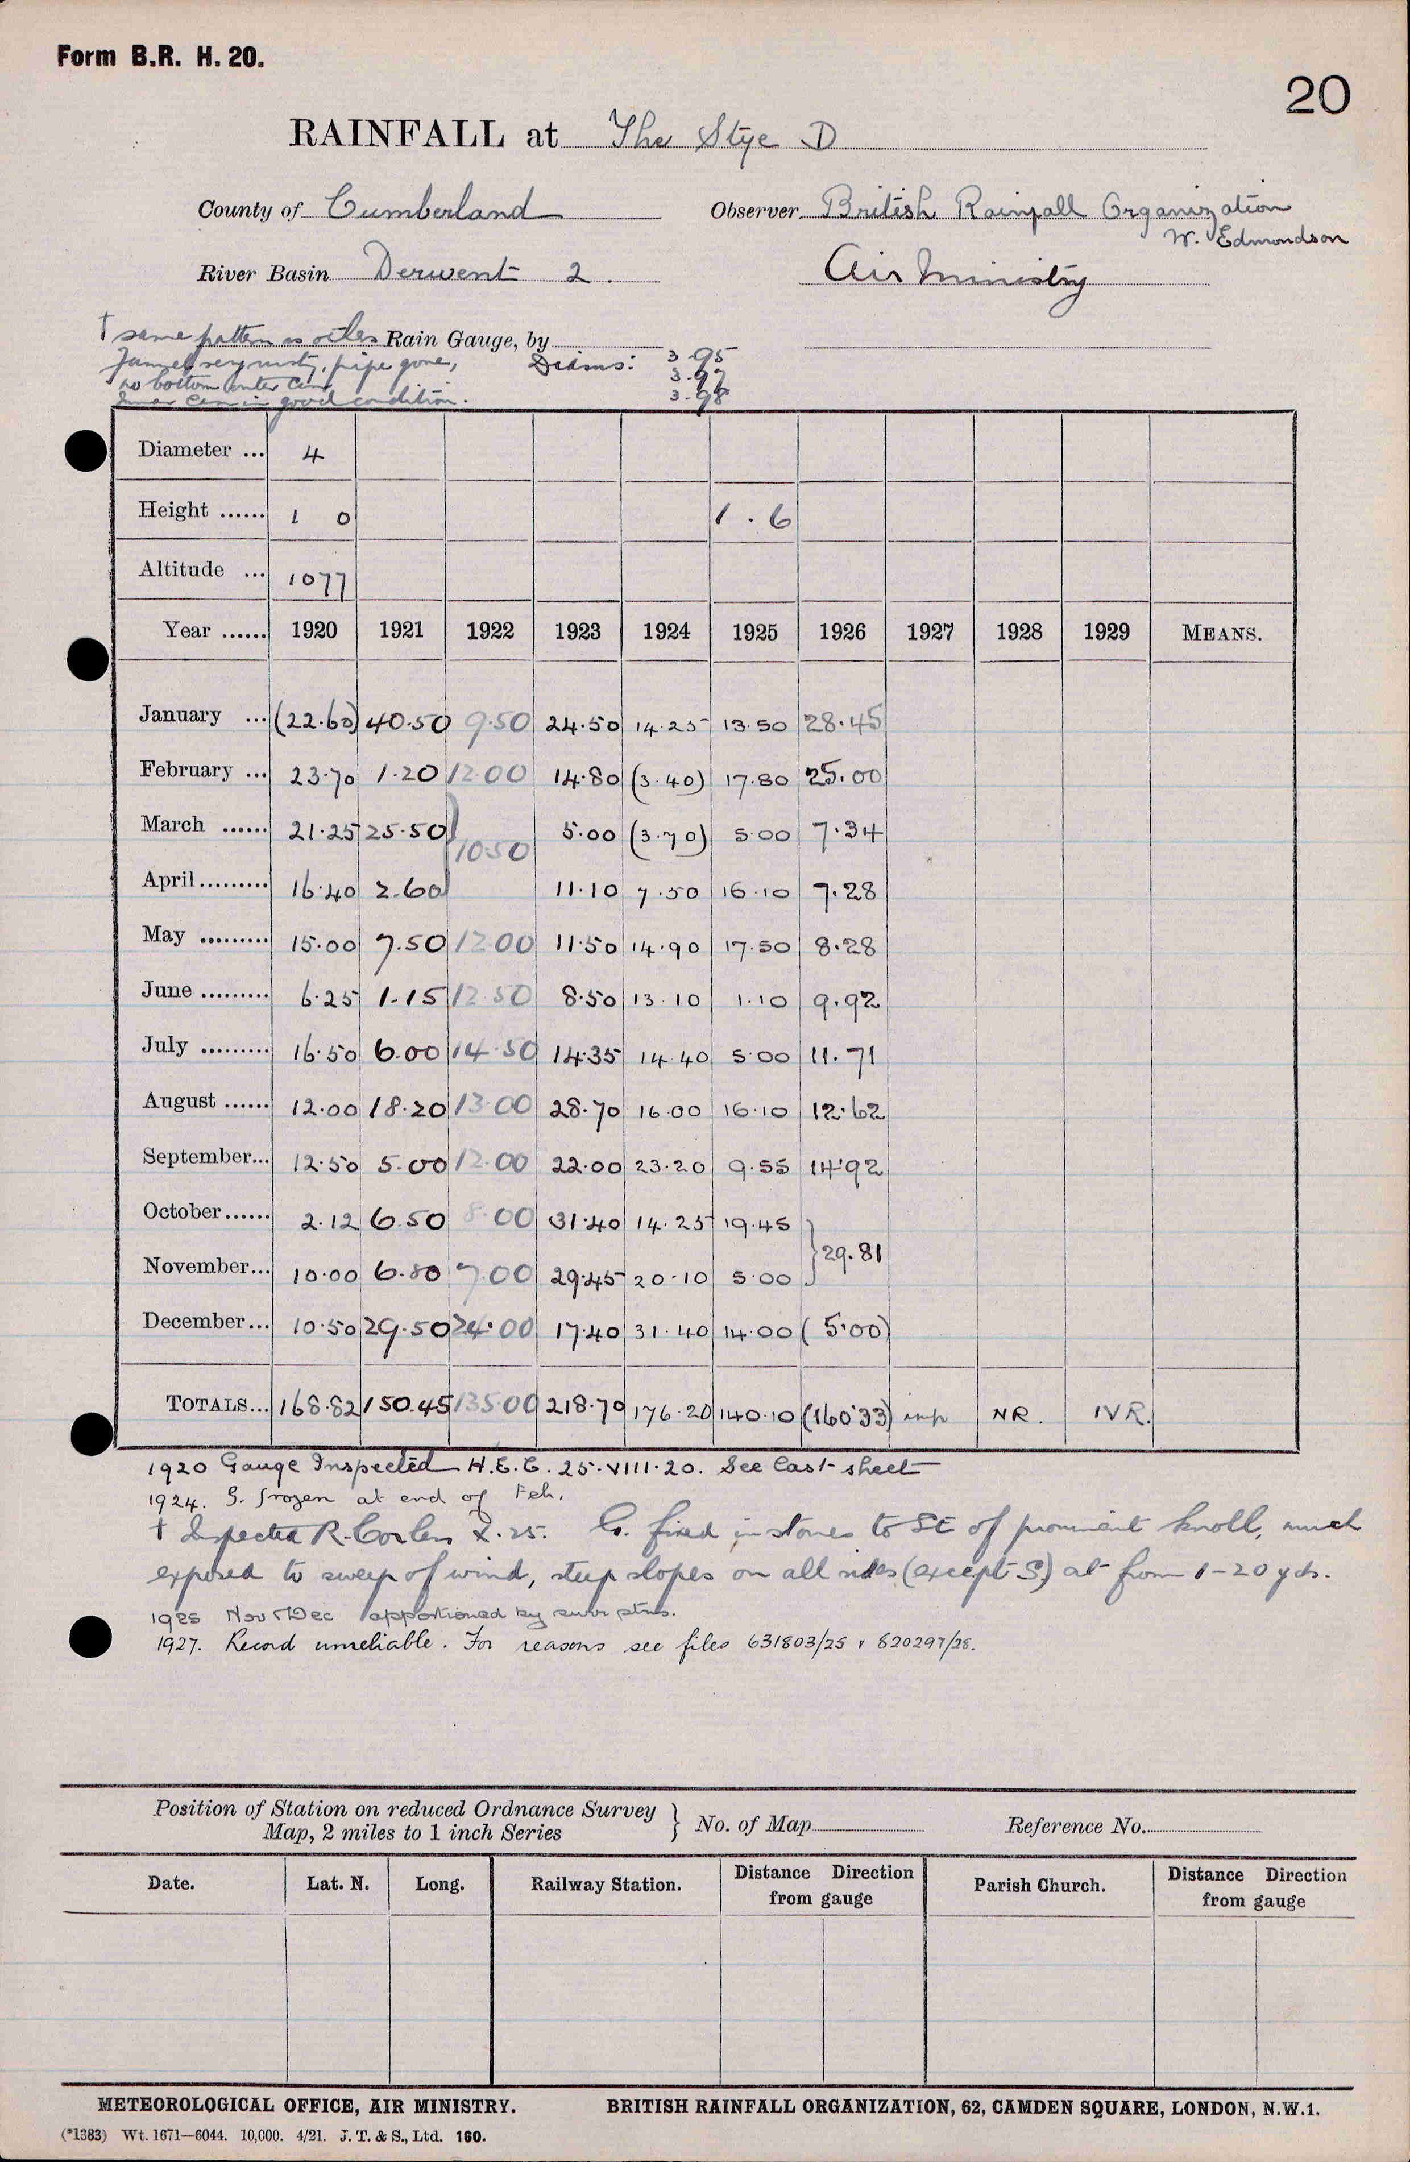 Form B.R. H. 20.
20
RAINFALL at The Stye D
County of Cumberland Observer British Rainfall Organization
W. Edmondson
River Basin Derwent 2. Air Ministry
† same pattern as other Rain Gauge, by
Funnel very rusty, pipe gone, Diams: 3.95
no bottom outer can 3.97
Inner can in good condition. 3.98
Diameter ... 4
Height ...... 1 0 1.6
Altitude ... 1077
Year ...... 1920 1921 1922 1923 1924 1925 1926 1927 1928 1929 MEANS.
January ... (22.60) 40.50 9.50 24.50 14.25 13.50 28.45
February ... 23.70 1.20 12.00 14.80 (3.40) 17.80 25.00
March ...... 21.25 25.50 } 10.50 5.00 (3.70) 5.00 7.34
April ......... 16.40 2.60 11.10 7.50 16.10 7.28
May ......... 15.00 7.50 12.00 11.50 14.90 17.50 8.28
June ......... 6.25 1.15 12.50 8.50 13.10 1.10 9.92
July ......... 16.50 6.00 14.50 14.35 14.40 5.00 11.71
August ...... 12.00 18.20 13.00 28.70 16.00 16.10 12.62
September... 12.50 5.00 12.00 22.00 23.20 9.55 14.92
October...... 2.12 6.50 8.00 31.40 14.25 19.45 } 29.81
November... 10.00 6.80 7.00 29.45 20.10 5.00
December... 10.50 29.50 24.00 17.40 31.40 14.00 (5.00)
TOTALS... 168.82 150.45 135.00 218.70 176.20 140.10 (160.33) inp NR. NR.
1920 Gauge Inspected H.E.C. 25.VIII.20. See last sheet
1924. G. frozen at end of Feb.
† Inspected R. Corless X.25. G. fixed in stones to SE of prominent knoll, much
exposed to sweep of wind, steep slopes on all sides (except S.) at from 1-20 yds.
1925 Nov & Dec apportioned by surr stns.
1927. Record unreliable. For reasons see files 631803/25 & 820297/28.
Position of Station on reduced Ordnance Survey
Map, 2 miles to 1 inch Series } No. of Map Reference No.
Date. Lat. N. Long. Railway Station. Distance Direction from gauge Parish Church. Distance Direction from gauge
METEOROLOGICAL OFFICE, AIR MINISTRY. BRITISH RAINFALL ORGANIZATION, 62, CAMDEN SQUARE, LONDON, N.W.1.
(*1383) Wt. 1671—6044. 10,000. 4/21. J. T. & S., Ltd. 160.